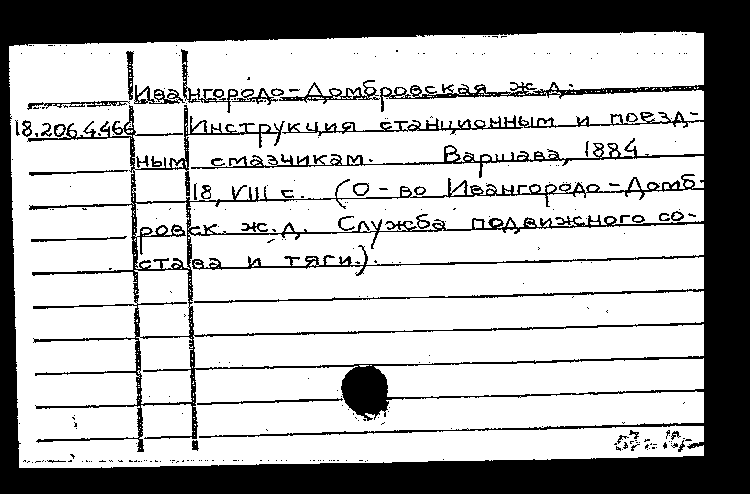 Ивангородо-Домбровская ж.д.
18.206.4.466 Инструкция станционным и поезд-
ным смазчикам. Варшава, 1884.
18, VIII с. (О-во Ивангородо-Домб-
ровск. ж.д. Служба подвижного со-
става и тяги.).